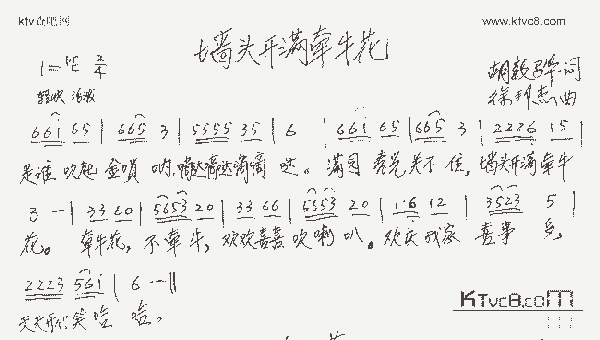 ktv点吧网
www.ktvc8.com
墙头开满牵牛花
1=♭E 2/4
轻快 活泼
徐邦杰曲
6 6 i 6 5 | 6 6 5 3 | 5 5 5 5 3 5 | 6 6 6 i 6 5 | 6 6 5 3 | 2 2 2 6 1 5 |
是谁吹起金唢呐,嘀嘀 哒。满园 关不住,墙头开满牵牛
3 -- | 3 3 2 0 | 5 6 5 3 2 0 | 3 3 6 6 | 5 5 5 3 2 0 | 1·6 1 2 | 3 5 2 3 5 |
花。牵牛花,不牵牛,欢欢喜喜吹喇叭。欢庆我家喜事多,
2 2 2 3 5 6 i | 6 --- ‖
天天 笑哈哈。
KTvc8.com